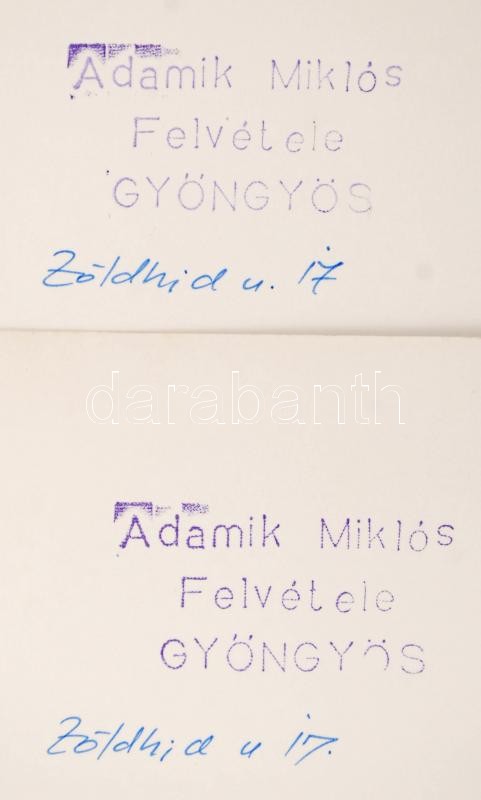 Adamik Miklós
Felvétele
GYÖNGYÖS
Zöldhid u. 17
darabanth
Adamik Miklós
Felvétele
GYÖNGYÖS
Zöldhid u 17.